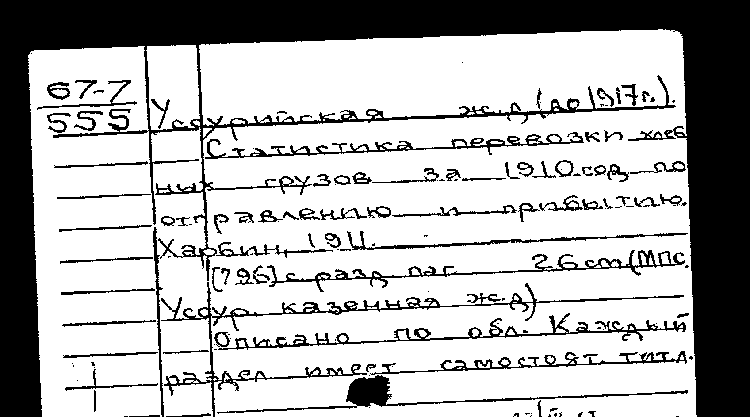 67-7
555
Уссурийская ж.д. (до 1917г.).
Статистика перевозки хлеб
ных грузов за 1910 год по
отправлению и прибытию.
Харбин, 1911.
[796] с разд паг 26 cm (МПС.
Уссур. казенная ж.д)
Описано по обл. Каждый
раздел имеет самостоят. тит.л.